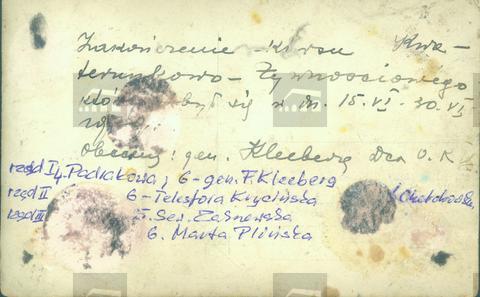 Zakończenie kursu Kwa-
terunkowo-Żywnościowego
który odbył się w m. 15.VI-30.VI
obecny: gen. Kleeberg Dca O.K
rząd I 4. Podrakowa, 6-gen. F. Kleeberg
rząd II 6-Telesfora Krycińska
rząd III 5. Sew. Żaśnewska
6. Marta Plińska